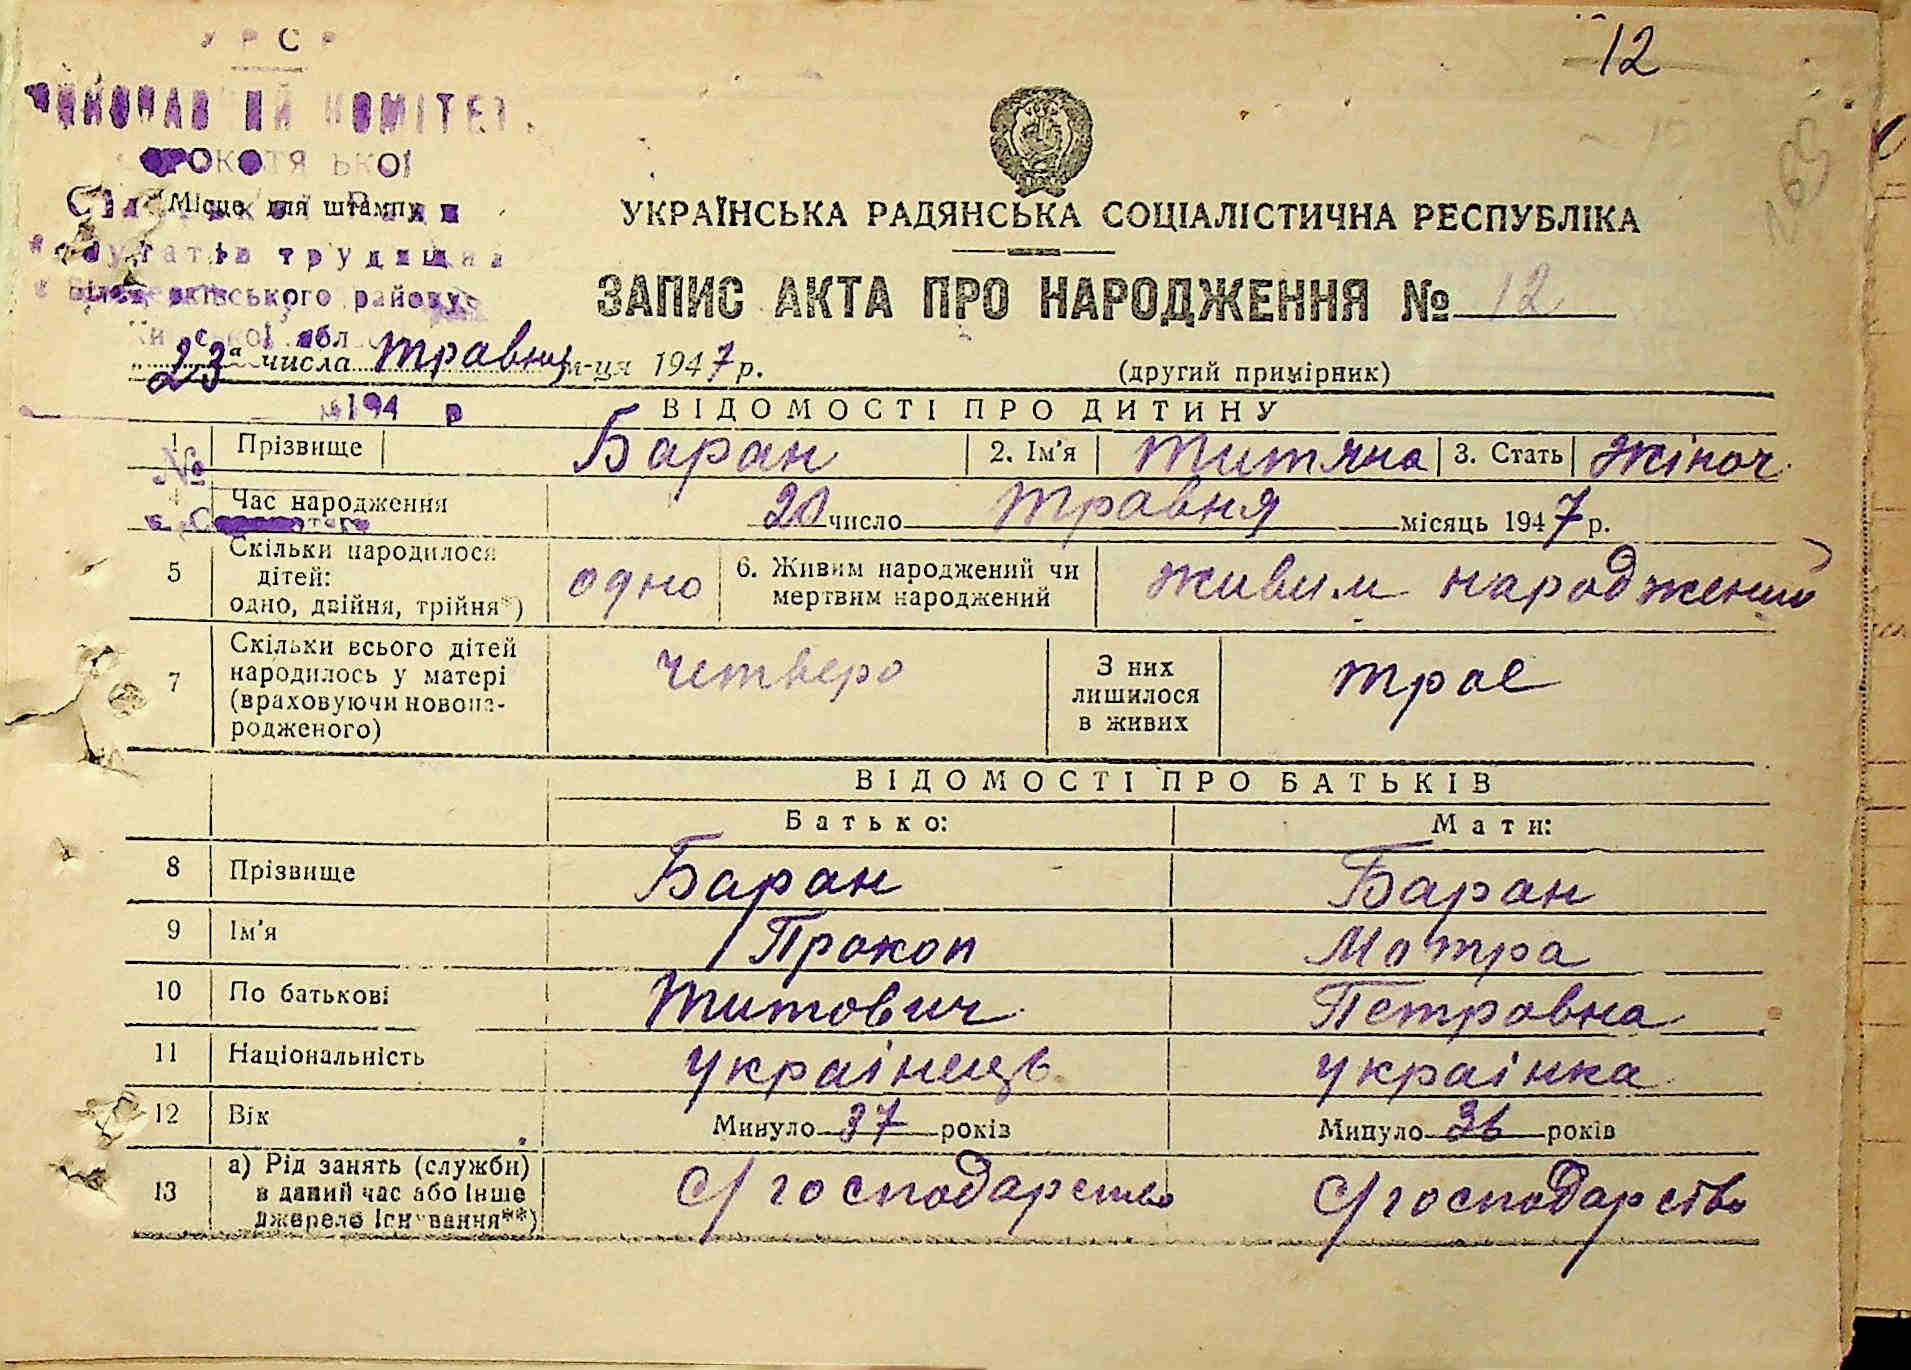 12
УРСР
КОМІТЕТ
Місце для штампу
трудящих
району
обл
УКРАЇНСЬКА РАДЯНСЬКА СОЦІАЛІСТИЧНА РЕСПУБЛІКА
ЗАПИС АКТА ПРО НАРОДЖЕННЯ № 12
23а числа травня м-ця 1947 р.
(другий примірник)
194 р
ВІДОМОСТІ ПРО ДИТИНУ
1 Прізвище Баран 2. Ім'я Титяна 3. Стать Жіноч.
№
4 Час народження 20 число Травня місяць 1947 р.
5 Скільки народилося дітей: одно, двійня, трійня*) одно 6. Живим народжений чи мертвим народжений живим народжений
7 Скільки всього дітей народилось у матері (враховуючи новона-родженого) четверо З них лишилося в живих трое
ВІДОМОСТІ ПРО БАТЬКІВ
Батько: Мати:
8 Прізвище Баран Баран
9 Ім'я Прокоп Мотра
10 По батькові Титович Петровна
11 Національність українець українка
12 Вік Минуло 37 років Минуло 36 років
13 а) Рід занять (служби) в даний час або інше джерело існування**) С/господарство С/господарство